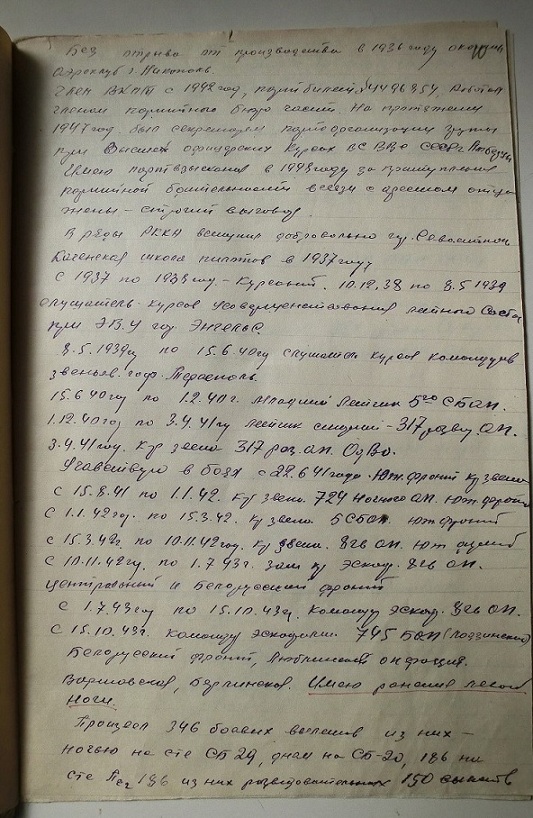 Без отрыва от производства в 1936 году окончил
Аэроклуб г. Никополь.
Член ВКП/б с 1942 год, партбилет 4496854, Работал
членом партийного бюро части. На протяжении
1947 год. был секретарем парторганизации группы
при Высших офицерских Курсах ВС
Имею партвзыскания в 1948 году за притупление
партийной бдительности в связи с арестом отца
жены – строгий выговор.
В ряды РККА вступил добровольно гор. Севастополь
Качинская школа пилотов в 1937 году,
С 1937 по 1938 год – Курсант. 10.12.38 по 8.5 1939
слушатель – курсов усовершенствования летного Состава
при гор Энгельс.
8.5.1939г по 15.6.40г слушатель курсов командиров
звеньев. гор.
15.6.40г по 1.2.40г. младший летчик 5го СБАП.
1.12.40год по 3.4.41г летчик старший – 317 развед. АП.
3.4.41 год. К-р звена 317 раз. ап. ОдВо.
Участвую в боях с 22.6 41 года. Юж. фронт к-р звена
С 15.8.41 по 1.1.42. К-р звена. 724 Ночного АП. Юж. фронт
С 1.1.42г. по 15.3.42. К-р звена 5 СБАП. юж фронт
с 15.3.42г. по 10.11.42 год. К-р звена. 8гв АП. Юж фронт
С 10.11.42г. по 1.7.43г. зам к-р эскад. 8гв АП.
Центральный и Белорусский фронт
С 1.7.43 год по 15.10.43г. Командир эскад. 8гв АП.
С 15.10.43г. Командир эскадрильи. 745 БАП
Белорусский фронт, Люблинская операция.
Варшовская, Берлинская. Имею ранения левой
Ноги.
Произвел 346 боевых вылетов из них –
ночью на с-те СБ 29, днем на СБ-20, 186 на
с-те Пе2 186 из них разведовательных 150 вылетов